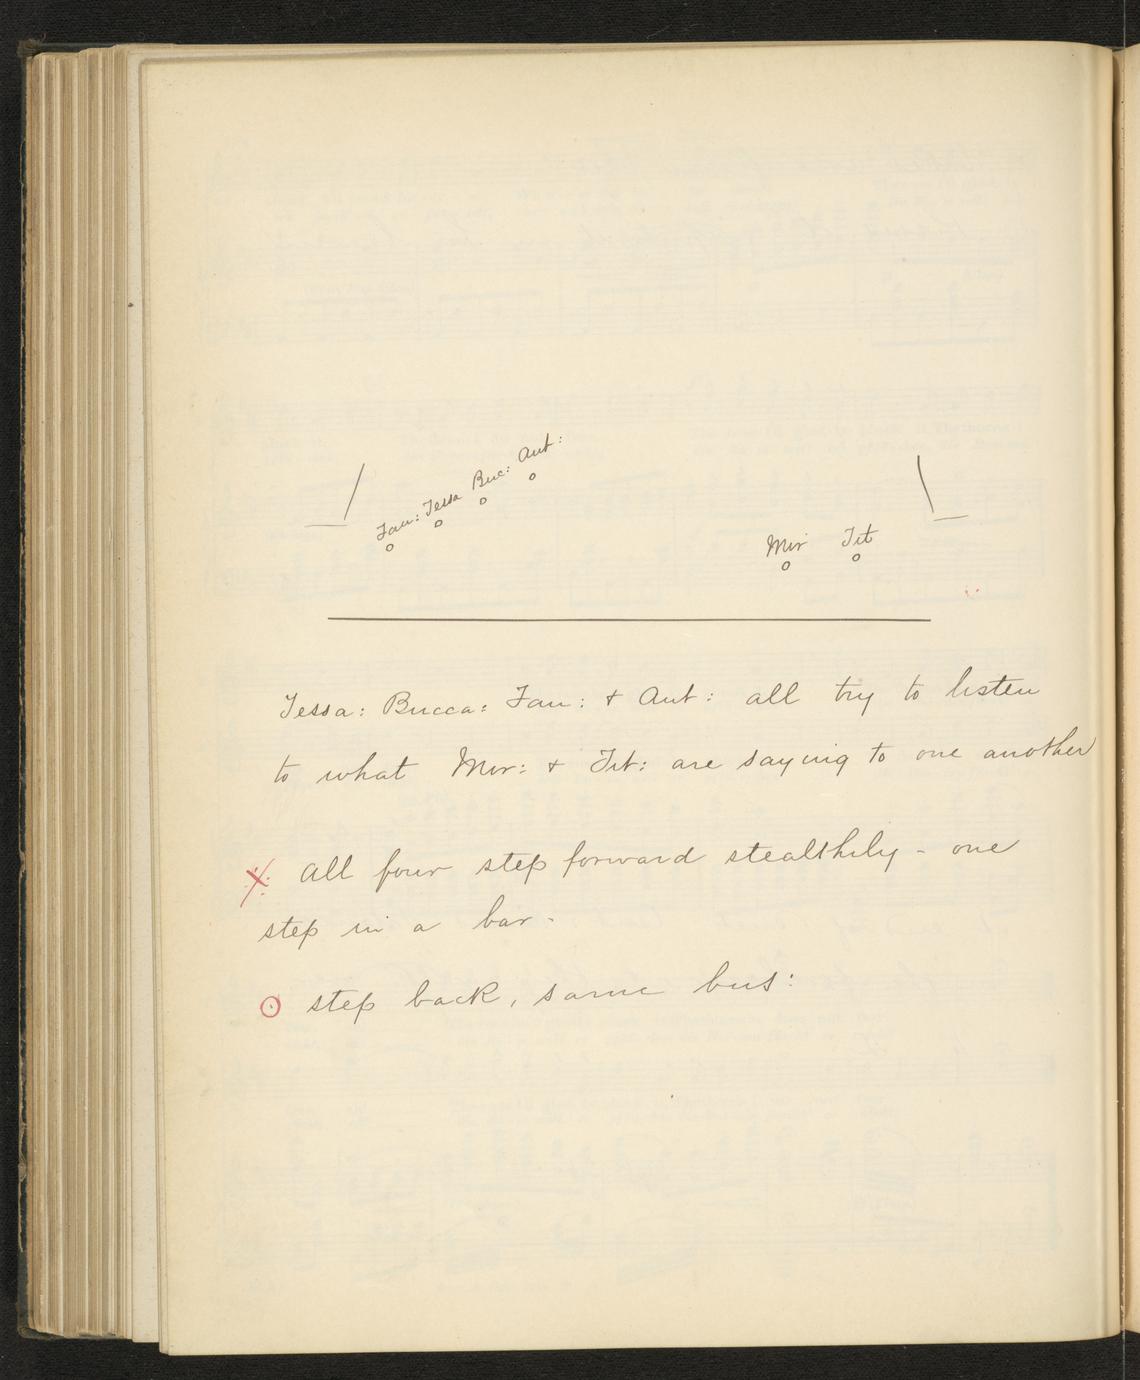 Fau: Tessa Buc: Ant:
Mir Tit
Tessa: Bucca: Fau: + Ant: all try to listen
to what Mir: + Tit: are saying to one another
All four step forward stealthily - one
step in a bar -
step back, same bus: